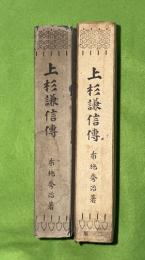 上杉謙信傳
布施秀治著
上杉謙信傳
布施秀治著